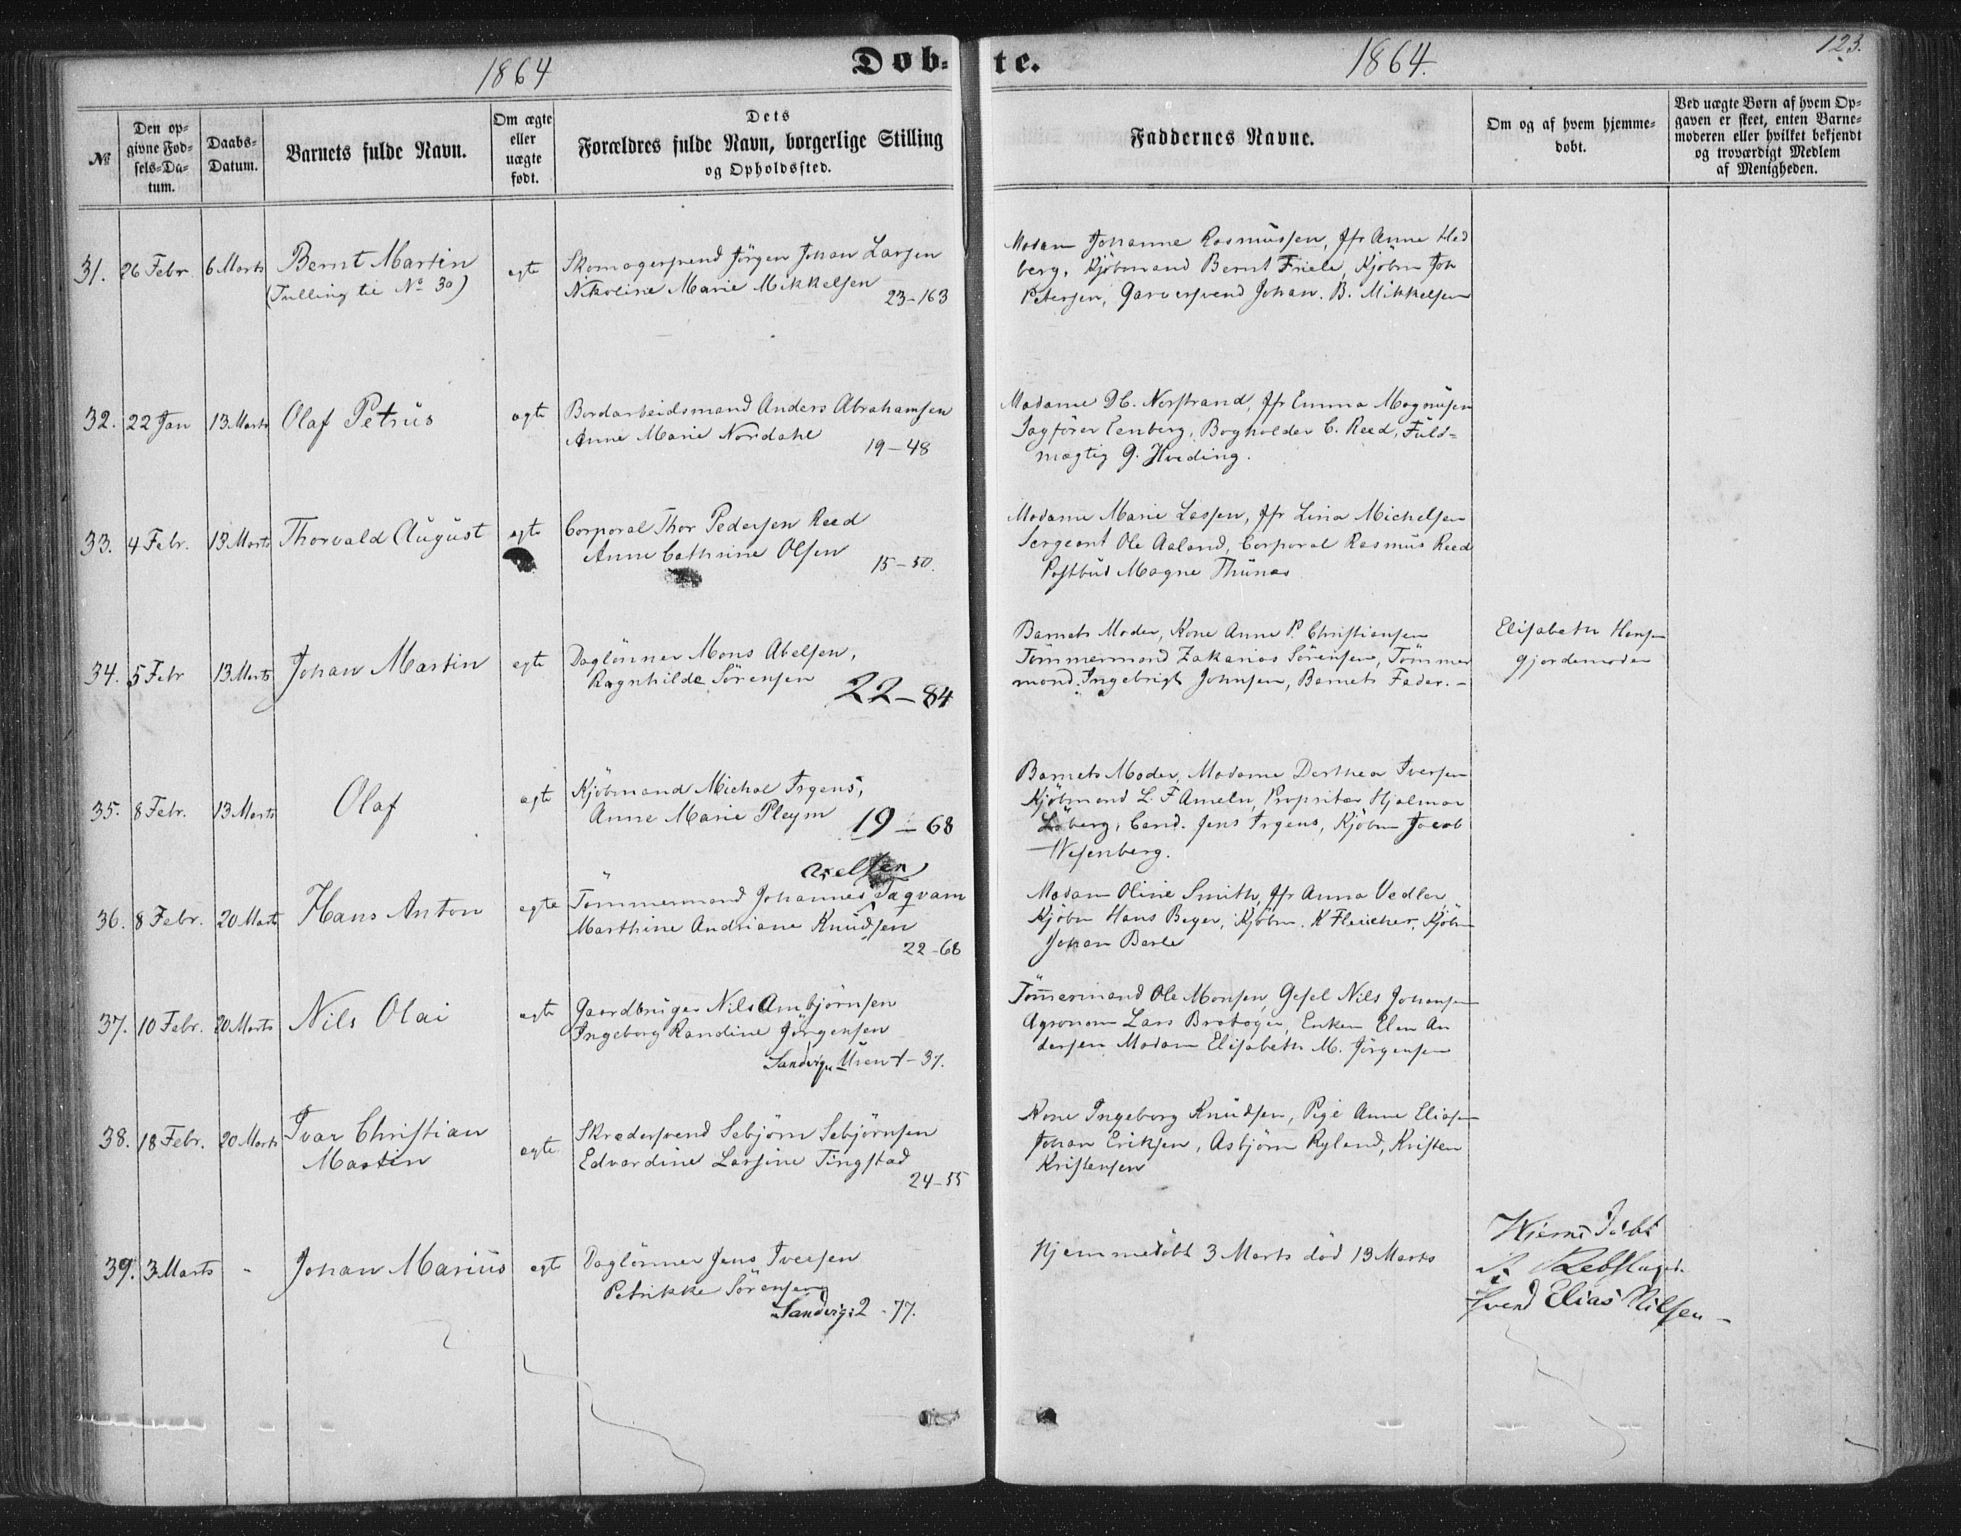 1864 Døb- te. 1864. 123.
№
Den op-
givne Fød-
sels-Da-
tum.
Daabs-
Datum.
Barnets fulde Navn.
Om ægte
eller
uægte
født.
Dets
Forældres fulde Navn, borgerlige Stilling
og Opholdssted.
Faddernes Navne.
Om og af hvem hjemme-
døbt.
Ved uægte Børn af hvem Op-
gaven er skeet, enten Barne-
moderen eller hvilket bekjendt
og troværdigt Medlem
af Menigheden.
31. 26 Febr. 6 Marts Bernt Martin
(Tvilling til No 30)
egte
Skomagersvend Jörgen Johan Larsen
Nikoline Marie Mikkelsen
23-163
Madam Johanne Rasmussen, Jfr Anne Hed
berg, Kjöbmand Bernt Friele, Kjöbm Joh
Petersen, Garversvend Johan. B. Mikkelsen
32. 22 Jan 13 Marts Olaf Petrus
egte
Bordarbeidsmand Anders Abrahamsen
Anne Marie Nordahl
19-48
Madame Nerstrand, Jfr Emma Magnusen
Sagförer Eenberg, Bogholder C. Reed, Fuld-
mægtig G. Hveding.
33. 4 Febr. 13 Marts Thorvald August
egte
Corporal Thor Pedersen Reed
Anne Cathrine Olsen
15-50.
Madame Marie Lassen, Jfr Lina Michelsen
Sergeant Ole Aaland, Corporal Rasmus Reed
Postbud Magne Thunæs
34. 5 Febr 13 Marts Johan Martin
egte
Daglönner Mons Abelsen,
Ragnhilde Sörensen
22-84
Barnets Moder, Kone Anne P. Christiansen
Tömmermand Zakarias Sörensen, Tömmer
mand Ingebrigt Johnsen, Barnets Fader. -
Elisabeth Hansen
gjordemoder
35. 8 Febr. 13 Marts Olaf
egte
Kjöbmand Michal Irgens,
Anne Marie Pleym
19-68
Barnets Moder, Madame Dorthea Iversen
Kjöbmand L. F Ameln, Propritær Hjalmar
Löberg, Cand. Jens Irgens, Kjöbm Jacob
Wesenberg.
36. 8 Febr. 20 Marts Hans Anton
egte
Axelsen
Tömmermand Johannes Dagvam
Marthine Andriane Knudsen
22-68
Madam Oline Smith, Jfr Anna Vedler
Kjöbm Hans Beyer, Kjöbm. K Fleischer, Kjöbm
Johan Barle
37. 10 Febr. 20 Marts Nils Olai
egte
Gaardbruger Nils Ambjörnsen
Ingeborg Randine Jörgensen
Sandvigen Uren 4-37.
Tömmermand Ole Monsen, Gesel Nils Johansen
Agronom Lars Bratager, Enken Elen An
dersen Madam Elisabeth M. Jörgensen
38. 18 Febr. 20 Marts Ivar Christian
Martin
egte
Skrædersvend Sebjörn Sebjörnsen
Edvardine Larsine Tingstad
24-55
Kone Ingeborg Knudsen, Pige Anne Eliasen
Johan Eriksen, Asbjörn Ryland, Kristen
Kristensen
39. 3 Marts - Johan Marius
egte
Daglönner Jens Iversen
Petrikke Sörensen
Sandvig: 2-77.
Hjemmedöbt 3 Marts död 13 Marts
Hjemedöbt
Af Rebslager
Svend Elias Nilsen